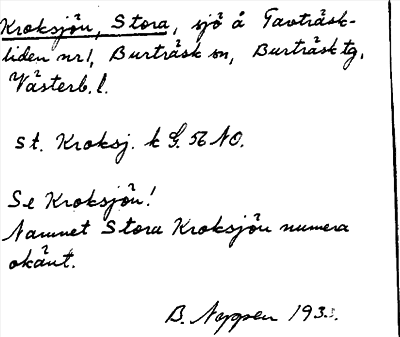 Kroksjön, Stora, sjö å Tavträsk-
liden nr 1, Burträsk sn, Burträsk tg,
Västerb. l.
St. Kroksj. k G. 56 NO.
Se Kroksjön!
Namnet Stora Kroksjön numera
okänt.
B. 193